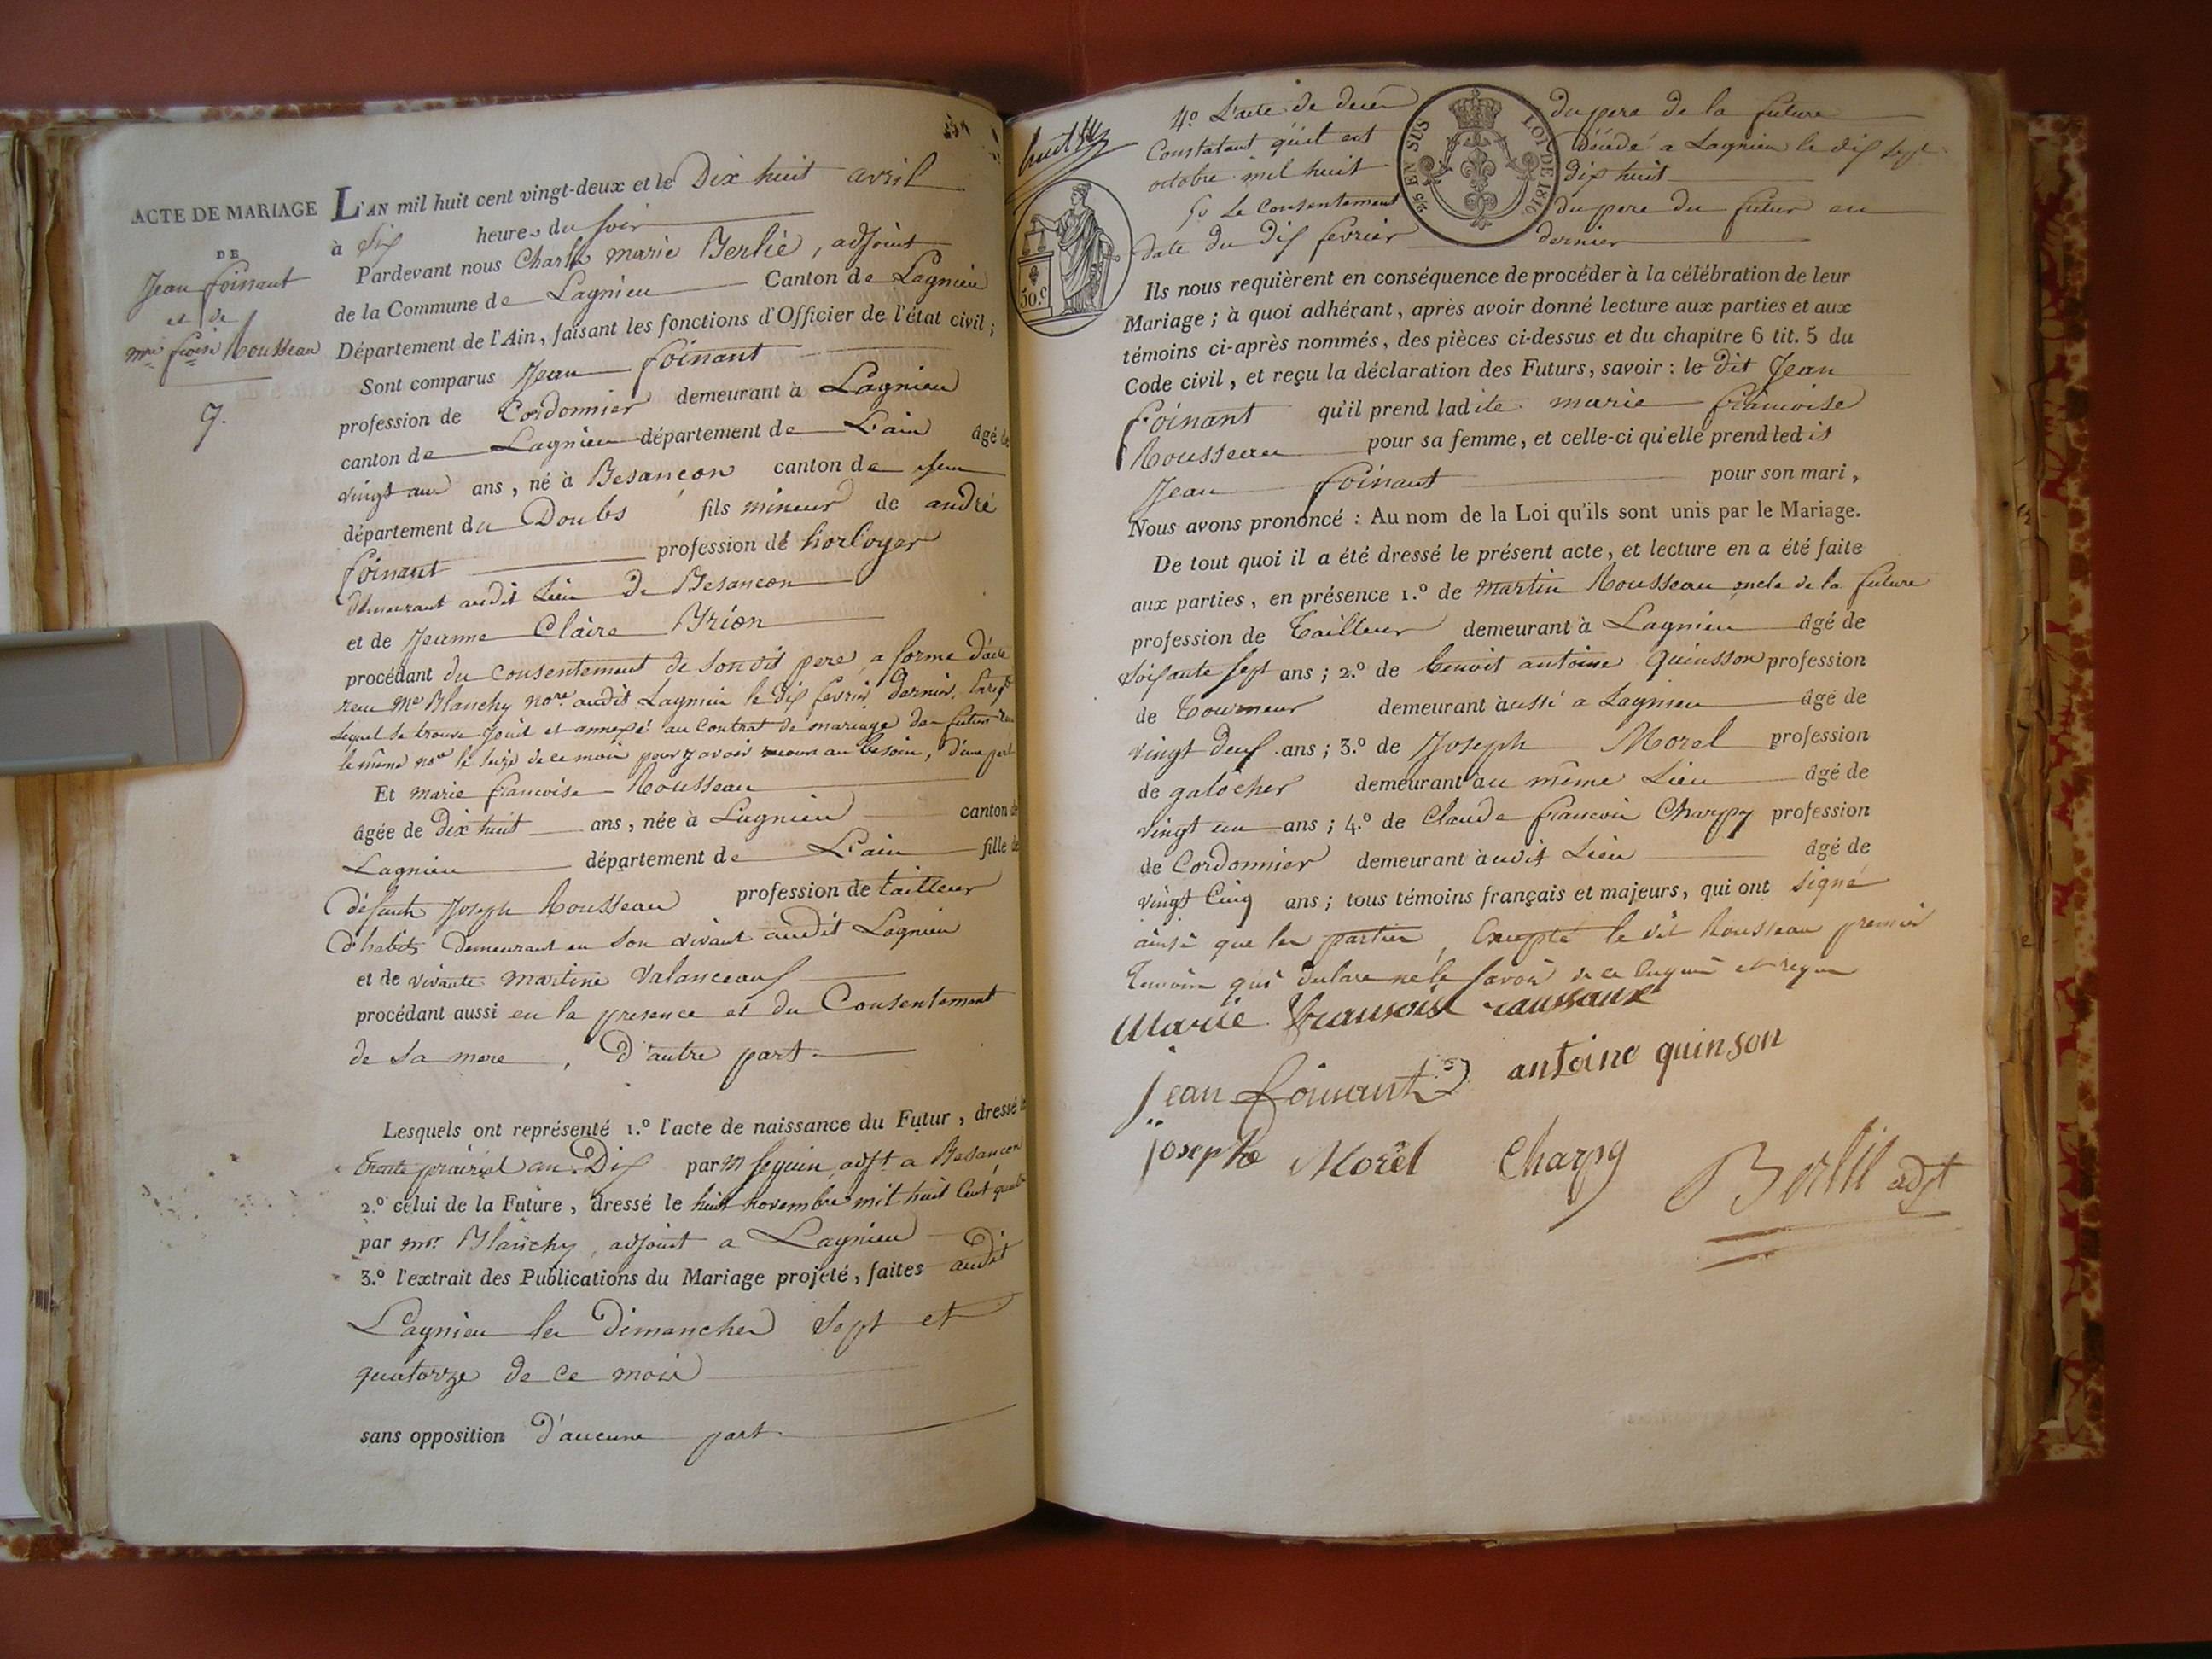 ACTE DE MARIAGE
DE
Jean foinant
et de
mie froise Rousseau
9.
L'AN mil huit cent vingt-deux et le Dix huit avril
à Six heures du soir
Pardevant nous Charle marie Berlié, adjoint
de la Commune de Lagnieu Canton de Lagnieu
Département de l'Ain, faisant les fonctions d'Officier de l'état civil;
Sont comparus Jean foinant
profession de Cordonnier demeurant à Lagnieu
canton de Lagnieu département de L'ain âgé de
vingt un ans, né à Besancon canton de
département du Doubs fils mineur de andré
foinant profession de horloger
demeurant audit Lieu de Besancon
et de Jeanne Claire Brion
procédant du consentement de son dit pere a forme d'acte
recu Me Blanchy nore audit Lagnieu le dix fevrier dernier,
Lequel se trouve Joint et annexé au Contrat de mariage des futurs
le même nore le seize de ce mois pour y avoir recours au besoin, d'une part
Et marie francoise Rousseau
âgée de Dix huit ans, née à Lagnieu canton de
Lagnieu département de L'ain fille de
défunt Joseph Rousseau profession de tailleur
d'habits Demeurant en Son vivant audit Lagnieu
et de vivante martine Valanceaux
procédant aussi en la presence et du Consentement
de Sa mere, D'autre part.
Lesquels ont représenté 1.º l'acte de naissance du Futur, dressé le
trente prairial an Dix par M seguin adjt a Besancon
2.º celui de la Future, dressé le huit novembre mil huit Cent quatre
par mr. Blanchy, adjoint a Lagnieu
3.º l'extrait des Publications du Mariage projeté, faites audit
Lagnieu les Dimanches Sept et
quatorze de ce mois
sans opposition D'aucune part.
4º L'acte de deces du pere de la future
Constatant qu'il est décédé a Lagnieu le dix sept
octobre mil huit dix huit
5º Le Consentement du pere du futur en
date du Dix fevrier dernier
EN SUS
LOI DE 1816
50.c
Ils nous requièrent en conséquence de procéder à la célébration de leur
Mariage; à quoi adhérant, après avoir donné lecture aux parties et aux
témoins ci-après nommés, des pièces ci-dessus et du chapitre 6 tit. 5 du
Code civil, et reçu la déclaration des Futurs, savoir: le dit Jean
foinant qu'il prend ladite marie francoise
Rousseau pour sa femme, et celle-ci qu'elle prend led it
Jean foinant pour son mari,
Nous avons prononcé: Au nom de la Loi qu'ils sont unis par le Mariage.
De tout quoi il a été dressé le présent acte, et lecture en a été faite
aux parties, en présence 1.º de Martin Rousseau oncle de la future
profession de Tailleur demeurant à Lagnieu âgé de
soixante sept ans; 2.º de benoit antoine Quinsson profession
de Tourneur demeurant aussi a Lagnieu âgé de
vingt deux ans; 3.º de Joseph Morel profession
de galocher demeurant au même Lieu âgé de
vingt un ans; 4.º de Claude francois Charpy profession
de Cordonnier demeurant audit Lieu âgé de
vingt Cinq ans; tous témoins français et majeurs, qui ont signé
ainsi que les parties, Excepté le dit Rousseau premier
temoin qui declare ne le savoir de ce enquis et requis
Marie Fransoise raussaux
jean foinant antoine quinson
joseph Morel Charpy Berlié adjt